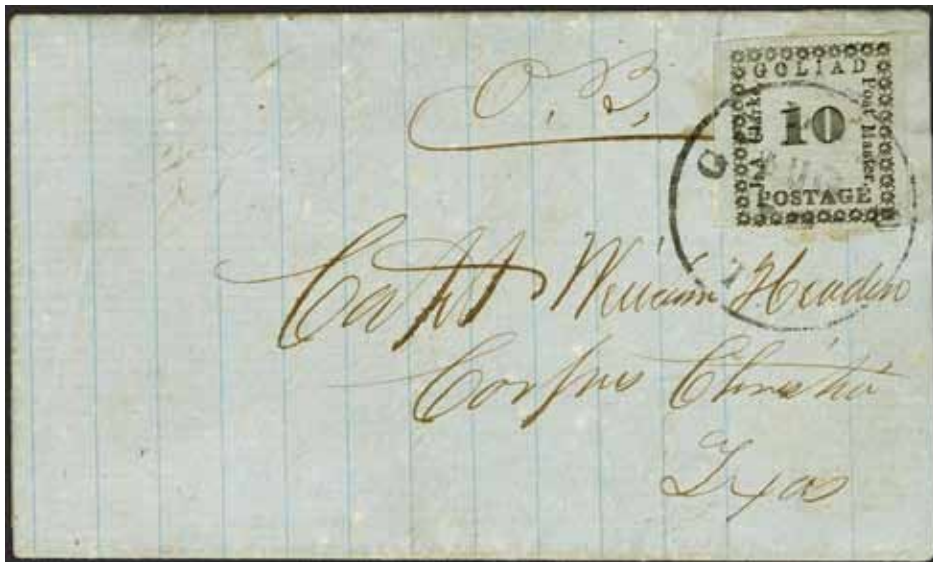 O. B.
GOLIAD
J. A. Clarke
10
Post Master.
POSTAGE
Capt William Headen
Corpus Christi
Texas